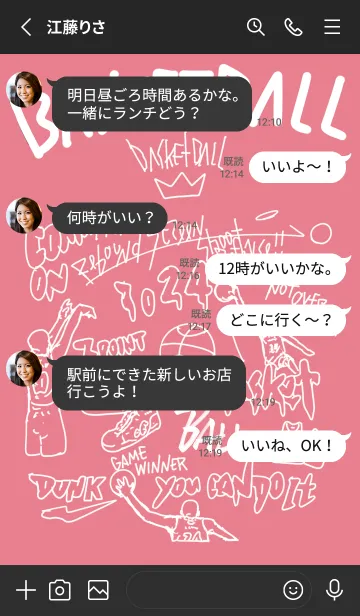 江藤りさ
BASKETBALL
明日昼ごろ時間あるかな。
一緒にランチどう？
12:10
BASKETBALL
既読
12:14
いいよ〜！
何時がいい？
12:14
ON
REBOUND
既読
12:16
12時がいいかな。
NOT OVER
既読
12:17
どこに行く〜？
FRONT
駅前にできた新しいお店
行こうよ！
12:19
BASKET
BALL
既読
12:19
いいね、OK！
GAME
WINNER
DUNK
YOU CAN DO It